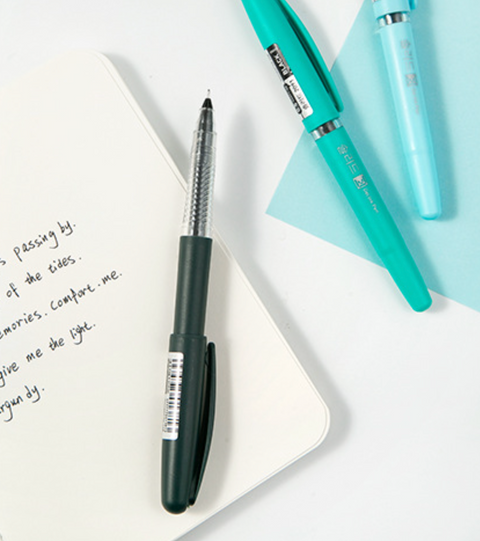 s passing by.
of the tides.
emories. comfort. me.
give me the light.
rgun dy.
BLACK
솔리드